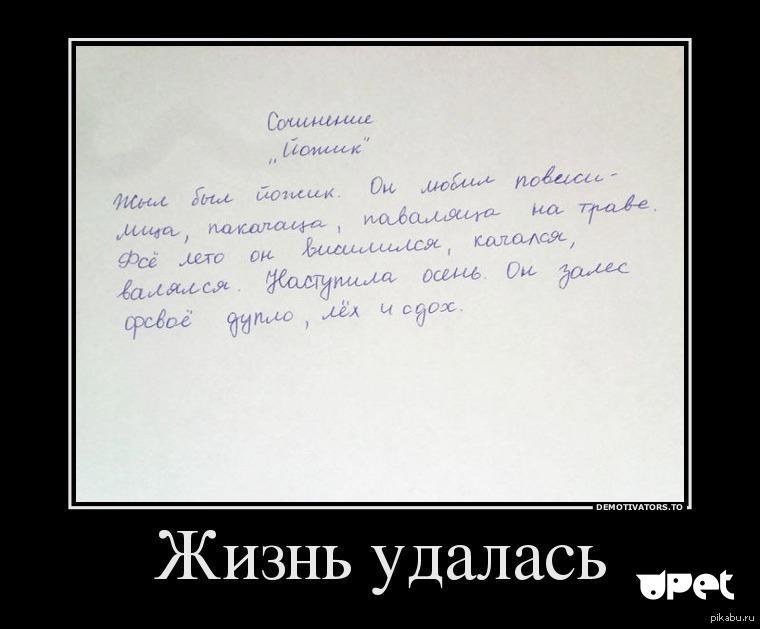 Сочинение
„Йожик"
Жыл был йожик. Он любил повсиси-
лица, пакачаца, паваляца на траве.
Фсё лето он висилился, качался,
валялся. Наступила осень. Он залес
фсвоё дупло, лёх и сдох.
DEMOTIVATORS.TO
Жизнь удалась
pikabu.ru